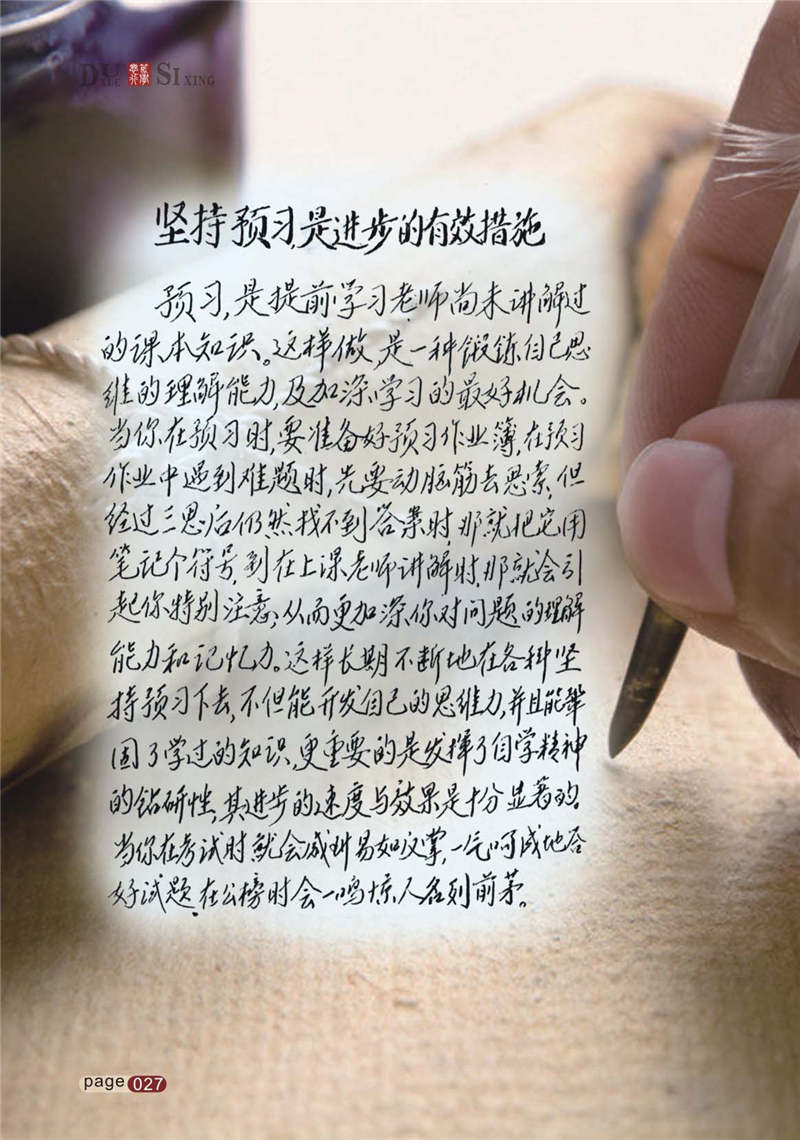 DU SI XING
坚持预习,是进步的有效措施
预习,是提前学习老师尚未讲解过
的课本知识。这样做,是一种锻炼自己思
维的理解能力,及加深学习的最好机会。
当你在预习时,要准备好预习作业簿,在预习
作业中遇到难题时,先要动脑筋去思索,但
经过三思后仍然找不到答案时,那就把它用
笔记个符号,到在上课老师讲解时,那就会引
起你特别注意;从而更加深你对问题的理解
能力和记忆力。这样长期不断地在各种坚
持预习下去,不但能开发自己的思维力,并且能巩
固了学过的知识,更重要的是发挥了自学精神
的钻研性,其进步的速度与效果是十分显著的。
当你在考试时就会感到易如反掌,一气呵成地答
好试题,在公榜时会一鸣惊人名列前茅。
page 027